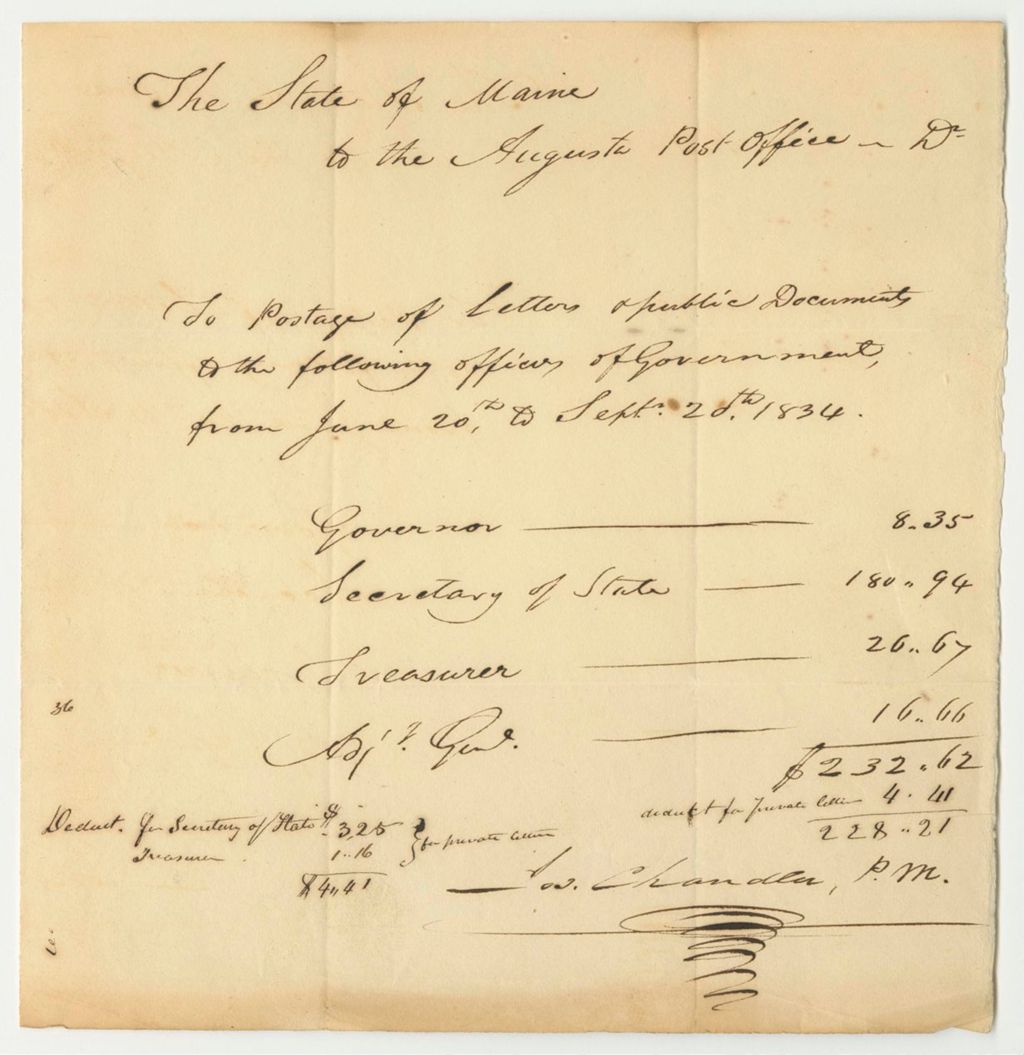 The State of Maine
to the Augusta Post Office - Dr
To Postage of Letters & public Documents
to the following offices of Government,
from June 20th, to Sept. 20th. 1834.
Governor 8.35
Secretary of State 180.. 94
Treasurer 26.. 67
Adjt. Genl. 16.. 66
$232..62
deduct for private letters 4.41
228..21
36
Deduct. for Secretary of State $3,25
Treasurer 1..16 } for private letters
$4..41
Jos. Chandler, P.M.